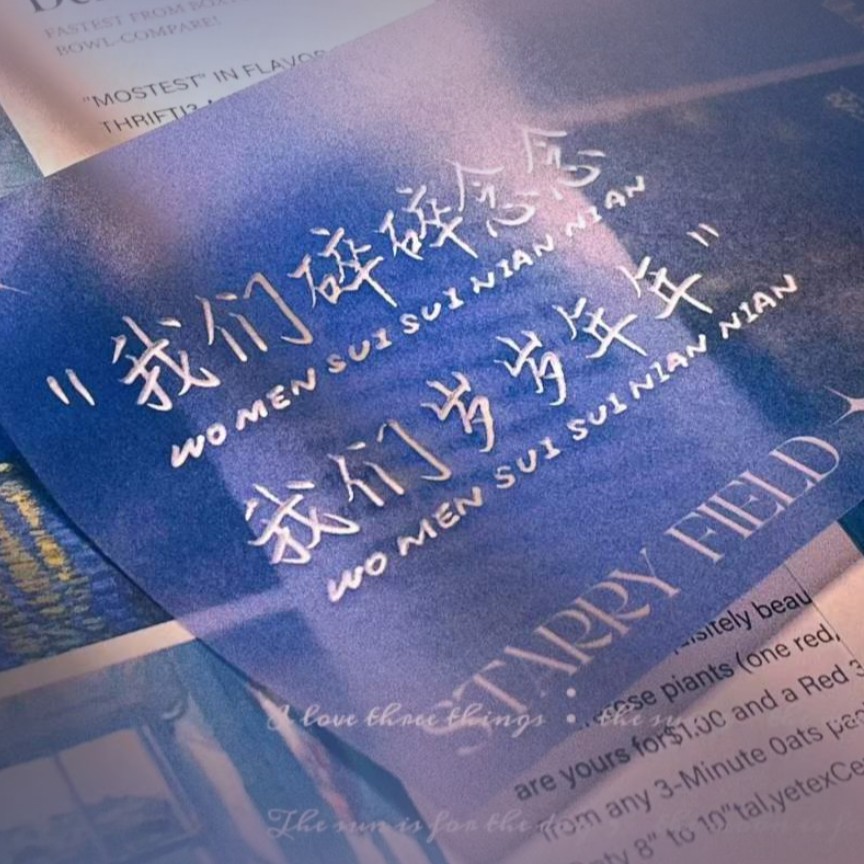 FASTEST FROM
BOWL-COMPARE!
"MOSTEST" IN FLAVOR
THRIFTI?
"我们碎碎念念
WOMEN SUI SUI NIAN NIAN
我们岁岁年年"
WOMEN SUI SUI NIAN NIAN
STARRY FIELD
beau
piants (one red,
are yours for$1.00 and a Red
from any 3-Minute Oats
8" to 10"tal,yetex
I love three things • the
The sun is for the